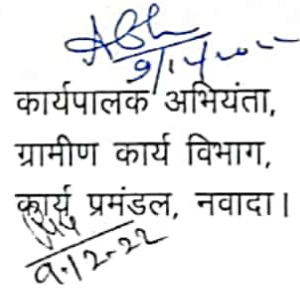 कार्यपालक अभियंता,
ग्रामीण कार्य विभाग,
कार्य प्रमंडल, नवादा।
9.12.22